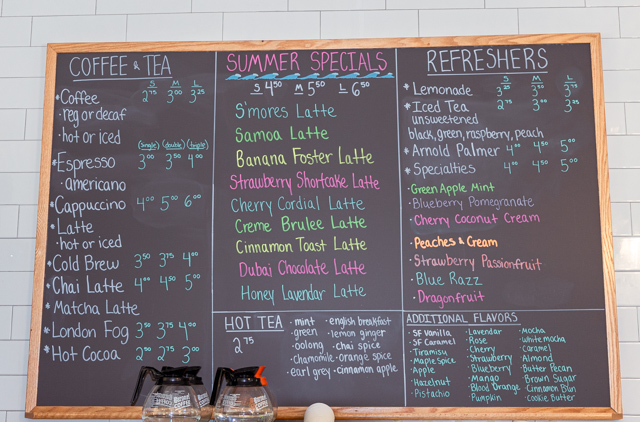 COFFEE & TEA
S M L
*Coffee 2⁷⁵ 3⁰⁰ 3²⁵
·reg or decaf
·hot or iced
(single) (double) (triple)
*Espresso 3⁰⁰ 3⁵⁰ 4⁰⁰
·americano
*Cappuccino 4⁰⁰ 5⁰⁰ 6⁰⁰
*Latte
·hot or iced
*Cold Brew 3⁵⁰ 3⁷⁵ 4⁰⁰
*Chai Latte 4⁰⁰ 4⁵⁰ 5⁰⁰
*Matcha Latte
*London Fog 3⁵⁰ 3⁷⁵ 4⁰⁰
*Hot Cocoa 2⁵⁰ 2⁷⁵ 3⁰⁰
SUMMER SPECIALS
S 4⁵⁰ M 5⁵⁰ L 6⁵⁰
S'mores Latte
Samoa Latte
Banana Foster Latte
Strawberry Shortcake Latte
Cherry Cordial Latte
Creme Brulee Latte
Cinnamon Toast Latte
Dubai Chocolate Latte
Honey Lavendar Latte
HOT TEA
2⁷⁵
·mint
·green
·oolong
·chamomile
·earl grey
·english breakfast
·lemon ginger
·chai spice
·orange spice
·cinnamon apple
REFRESHERS
S M L
*Lemonade 3²⁵ 3⁵⁰ 3⁷⁵
*Iced Tea 2⁷⁵ 3⁰⁰ 3²⁵
unsweetened
black, green, raspberry, peach
*Arnold Palmer 4⁰⁰ 4⁵⁰ 5⁰⁰
*Specialties 4⁰⁰ 4⁵⁰ 5⁰⁰
·Green Apple Mint
·Blueberry Pomegranate
·Cherry Coconut Cream
·Peaches & Cream
·Strawberry Passionfruit
·Blue Razz
·Dragonfruit
ADDITIONAL FLAVORS
·SF Vanilla
·SF Caramel
·Tiramisu
·Maple Spice
·Apple
·Hazelnut
·Pistachio
·Lavendar
·Rose
·Cherry
·Strawberry
·Blueberry
·Mango
·Blood Orange
·Pumpkin
·Mocha
·White mocha
·Caramel
·Almond
·Butter Pecan
·Brown Sugar
·Cinnamon Bun
·Cookie Butter